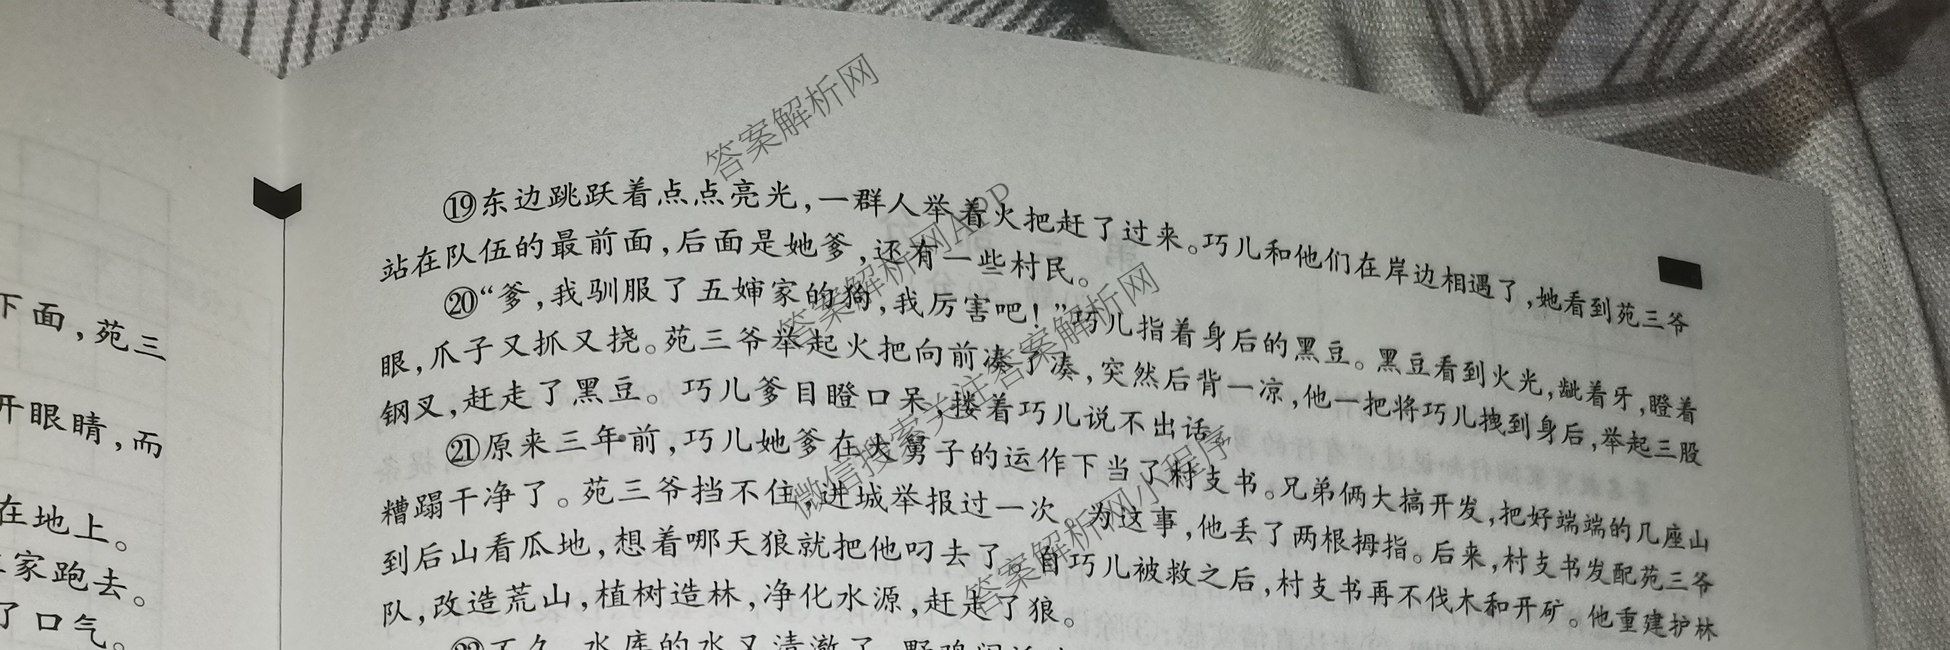 下面,苑三
开眼睛,而
在地上。
家跑去。
了口气。
⑲东边跳跃着点点亮光,一群人举着火把赶了过来。巧儿和他们在岸边相遇了,她看到苑三爷
站在队伍的最前面,后面是她爹,还有一些村民。
⑳“爹,我驯服了五婶家的狗,我厉害吧!”巧儿指着身后的黑豆。黑豆看到火光,龇着牙,瞪着
眼,爪子又抓又挠。苑三爷举起火把向前凑了凑,突然后背一凉,他一把将巧儿拽到身后,举起三股
钢叉,赶走了黑豆。巧儿爹目瞪口呆,搂着巧儿说不出话。
㉑原来三年前,巧儿她爹在大舅子的运作下当了村支书。兄弟俩大搞开发,把好端端的几座山
糟蹋干净了。苑三爷挡不住,进城举报过一次。为这事,他丢了两根拇指。后来,村支书发配苑三爷
到后山看瓜地,想着哪天狼就把他叼去了。自巧儿被救之后,村支书再不伐木和开矿。他重建护林
队,改造荒山,植树造林,净化水源,赶走了狼。
㉒不久,水库的水又清澈了,野鸭
答案解析网
答案解析网APP
微信搜索关注答案解析网
答案解析网小程序